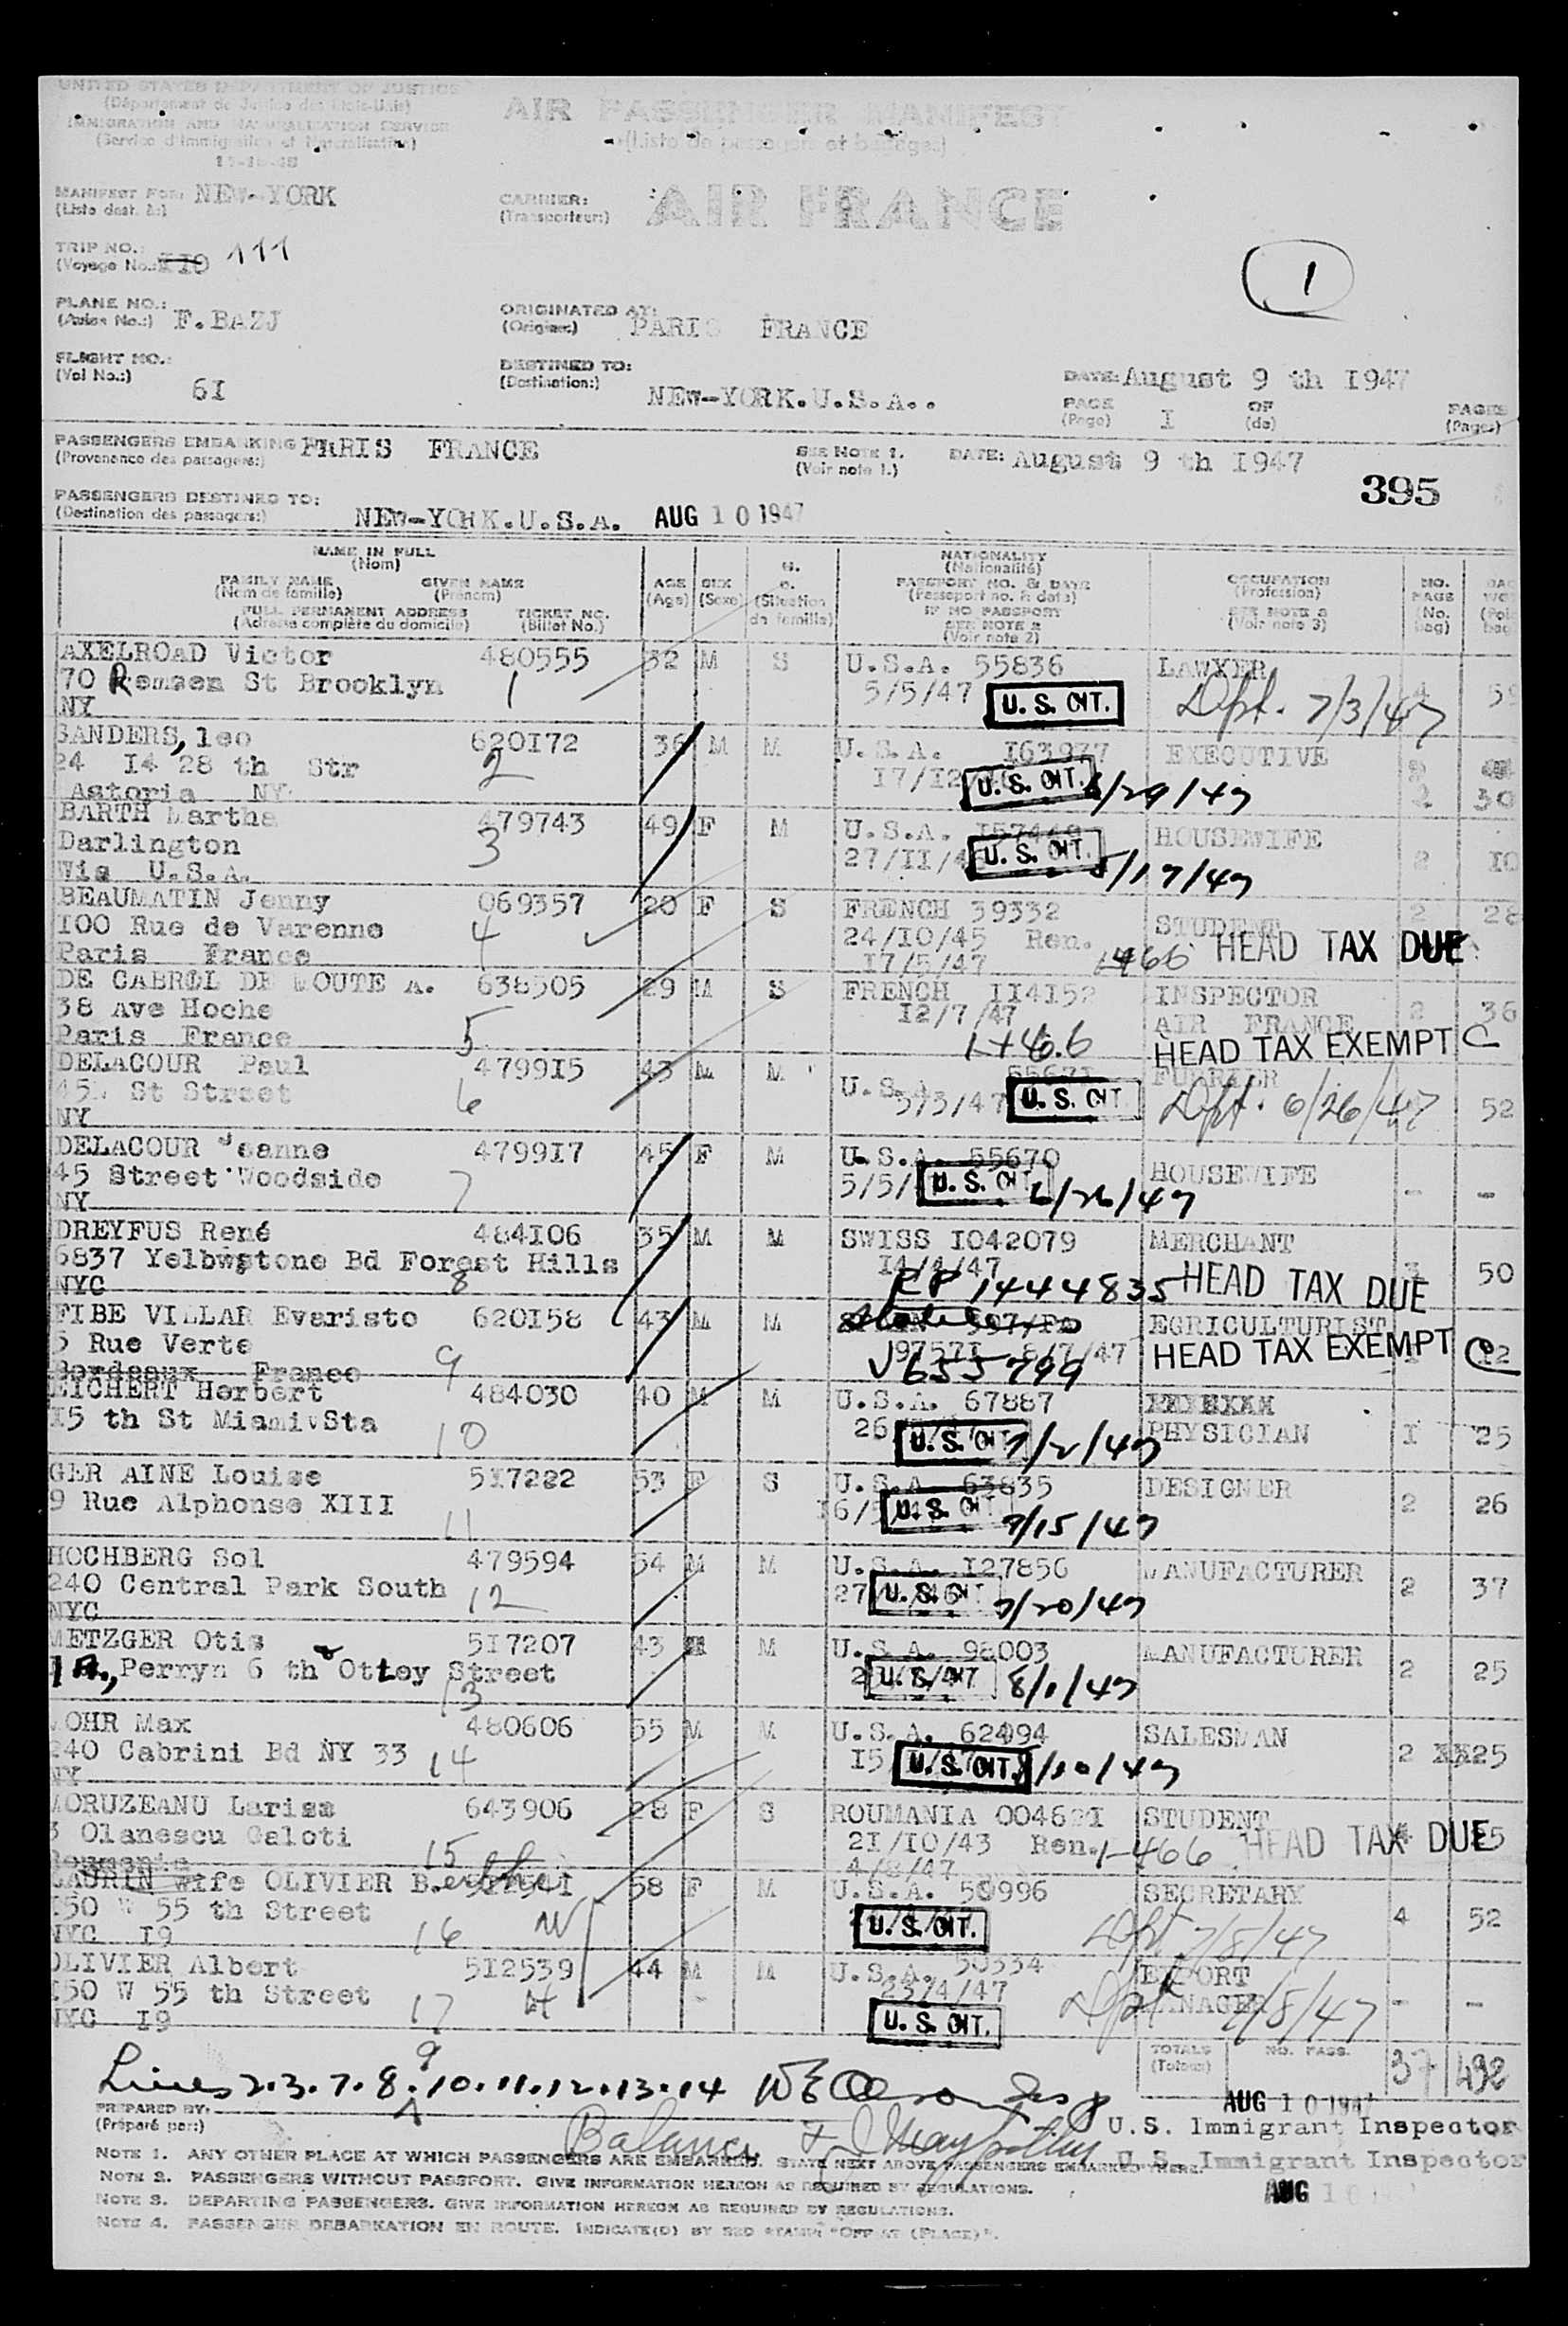 UNITED STATES DEPARTMENT OF JUSTICE
(Département de Justice des Etats-Unis)
IMMIGRATION AND NATURALIZATION SERVICE
(Service d'immigration et Naturalisation)
AIR PASSENGER MANIFEST
(Liste de passagers et bagages)
MANIFEST FOR: NEW-YORK
(Liste dest. à:)
CARRIER: AIR FRANCE
(Transporteur:)
TRIP NO.: 111
(Voyage No.:)
1
PLANE NO.: F.BAZJ
(Avion No.:)
ORIGINATED AT: PARIS FRANCE
(Origine:)
FLIGHT NO.: 6I
(Vol No.:)
DESTINED TO: NEW-YORK.U.S.A..
(Destination:)
DATE: August 9 th I947
PAGE I OF PAGES
(Page) (de) (Pages)
PASSENGERS EMBARKING PARIS FRANCE
(Provenance des passagers:)
SEE NOTE 1. DATE: August 9 th I947
(Voir note 1.)
395
PASSENGERS DESTINED TO: NEW-YORK.U.S.A. AUG 10 1947
(Destination des passagers:)
NAME IN FULL
(Nom)
FAMILY NAME GIVEN NAME
(Nom de famille) (Prénom)
FULL PERMANENT ADDRESS TICKET NO.
(Adresse complète du domicile) (Billet No.)
AGE SEX
(Age) (Sexe) (Situation de famille)
NATIONALITY
(Nationalité)
PASSPORT NO. & DATE
(Passeport no. & date)
IF NO PASSPORT
SEE NOTE 2
(Voir note 2)
OCCUPATION
(Profession)
SEE NOTE 3
(Voir note 3)
NO. BAGS
(No. bag)
AXELROAD Victor 480555 32 M S U.S.A. 55836 LAWYER
70 Remsen St Brooklyn 1 5/5/47 U.S. CIT. Dept. 7/3/47
NY
SANDERS, leo 620I72 36 M M U.S.A. I63977 EXECUTIVE
24 I4 28 th Str 2 I7/I2 U.S. CIT. /29/47
Astoria NY 2 30
BARTH Martha 479743 49 F M U.S.A. HOUSEWIFE
Darlington 3 27/II/4 U.S. CIT. /17/47 2 I0
Wis U.S.A.
BEAUMATIN Jenny 069357 20 F S FRENCH 39332 STUDENT 2 28
I00 Rue de Varenne 4 24/I0/45 Ren. HEAD TAX DUE
Paris France I7/5/47 1466
DE CABROL DE MOUTE A. 638505 29 M S FRENCH II4I52 INSPECTOR 2 36
38 Ave Hoche I2/7/47 AIR FRANCE
Paris France 5 HEAD TAX EXEMPT C
DELACOUR Paul 4799I5 43 M M U.S.A. 5567I FURRIER
45. St Street 6 5/5/47 U.S. CIT. Dept. 6/26/47 52
NY
DELACOUR Jeanne 4799I7 45 F M U.S.A. 55670 HOUSEWIFE
45 Street Woodside 7 5/5/ U.S. CIT. 6/26/47 - -
NY
DREYFUS René 484I06 35 M M SWISS I042079 MERCHANT
6837 Yelbwstone Bd Forest Hills I4/4/47 3 50
NYC 8 RP 1444835 HEAD TAX DUE
FIBE VILLAR Evaristo 620I58 43 M M EGRICULTURIST
5 Rue Verte 9757I 8/7/47 HEAD TAX EXEMPT C
Bordeaux France 9 V655799
EICHERT Herbert 484030 40 M M U.S.A. 67887
I5 th St Miami Sta 10 26 U.S. CIT. 7/2/47 PHYSICIAN I 25
GER AINE Louise 5I7222 53 F S U.S.A. 63835 DESIGNER
9 Rue Alphonse XIII 11 I6/5 U.S. CIT. 7/15/47 2 26
HOCHBERG Sol 479594 54 M M U.S.A. I27856 MANUFACTURER
240 Central Park South 12 27 U.S. CIT. 7/20/47 2 37
NYC
METZGER Otis 5I7207 43 M U.S.A. 98003 MANUFACTURER
Perryn 6 th Ottey Street 13 U.S. CIT 8/1/47 2 25
OHR Max 480606 55 M M U.S.A. 62494 SALESMAN
240 Cabrini Bd NY 33 14 I5 U.S. CIT. /10/47 2 XX25
NY
MORUZEANU Lariss 643906 28 F S ROUMANIA 00462I STUDENT
3 Olanescu Galoti 15 2I/I0/43 Ren. 1-466 HEAD TAX DUE
Roumania 4/8/47
LAURIN wife OLIVIER Berthe 58 F M U.S.A. 50996 SECRETARY
I50 W 55 th Street W U.S. CIT. Dept 7/8/47 4 52
NYC I9 16
OLIVIER Albert 5I2539 44 M M U.S.A. 50334 EXPORT
I50 W 55 th Street H 23/4/47 MANAGER - -
NYC I9 17 U.S. CIT. Dept 7/8/47
TOTALS NO. PASS. 37 492
(Totaux)
Lines 2.3.7.8.9.10.11.12.13.14
AUG 10 1947
PREPARED BY:
(Préparé par:)
U.S. Immigrant Inspector
Balance
U.S. Immigrant Inspector
AUG 10
NOTE 1. ANY OTHER PLACE AT WHICH PASSENGERS ARE EMBARKED. STATE NEXT ABOVE PASSENGERS EMBARKED THERE.
NOTE 2. PASSENGERS WITHOUT PASSPORT. GIVE INFORMATION HEREON AS REQUIRED BY REGULATIONS.
NOTE 3. DEPARTING PASSENGERS. GIVE INFORMATION HEREON AS REQUIRED BY REGULATIONS.
NOTE 4. PASSENGER DEBARKATION EN ROUTE. INDICATE(D) BY RED STAMP "OFF AT (PLACE)".